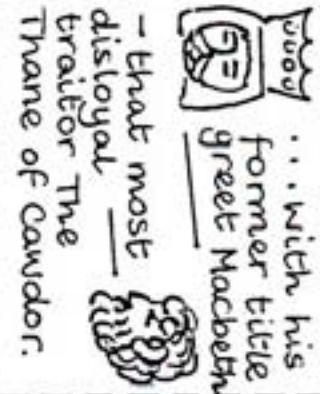 ...with his
former title
greet Macbeth
- that most
disloyal
traitor The
Thane of Cawdor.